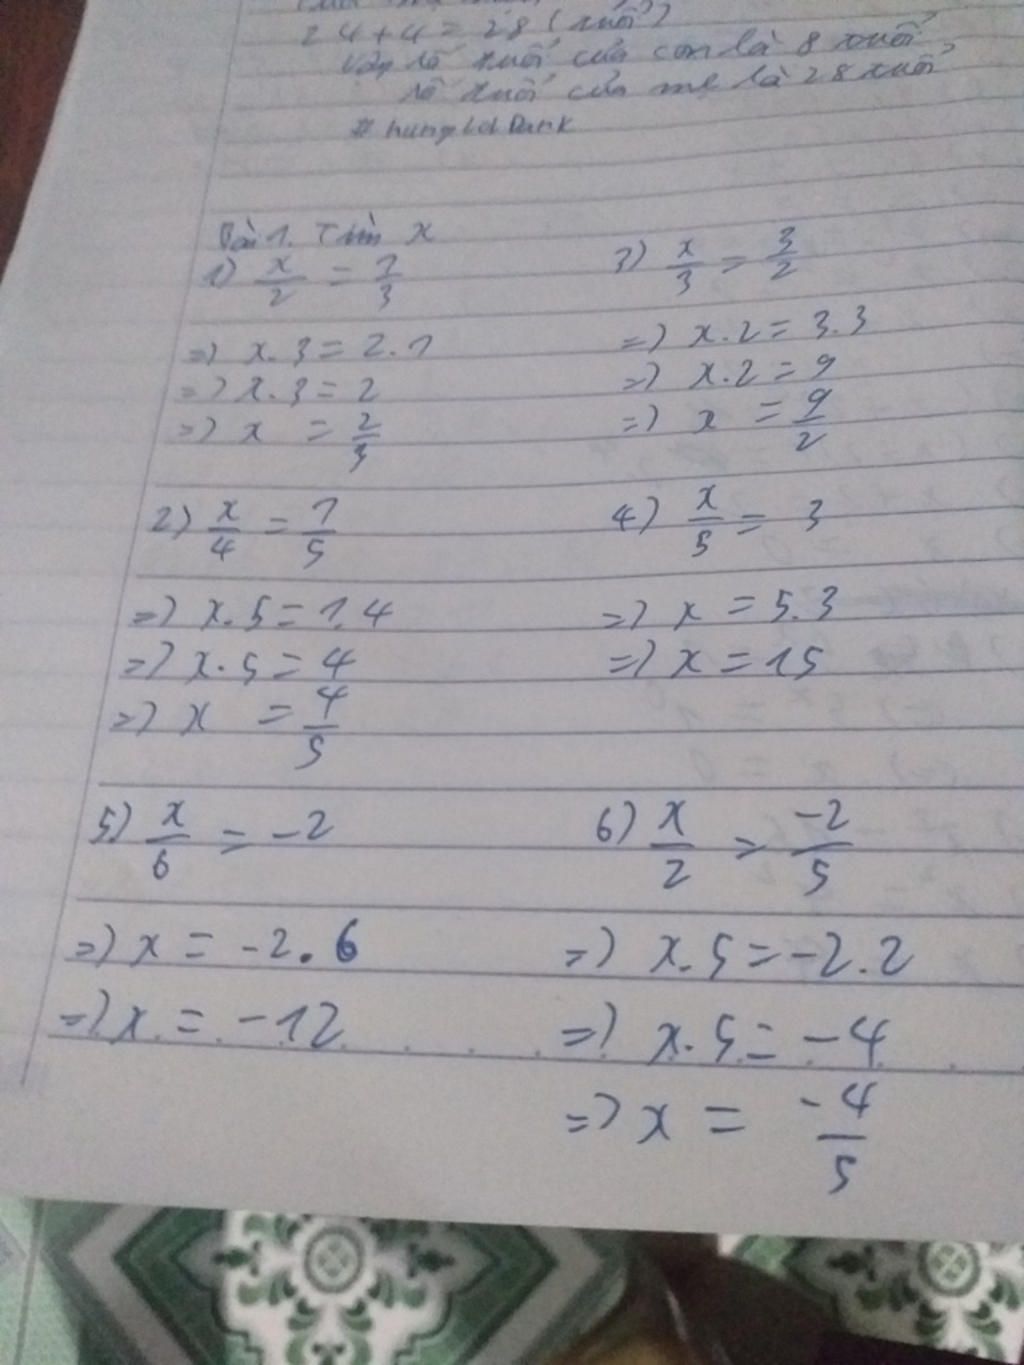 24+4=28 (tuổi)
Vậy số tuổi của con là 8 tuổi
số tuổi của mẹ là 28 tuổi
Bài 1. Tìm x
1) x/2 = 1/3
=) x.3=2.1
=) x.3=2
=) x = 2/3
2) x/4 = 1/5
=) x.5=1.4
=) x.5=4
=) x = 4/5
3) x/3 = 3/2
=) x.2=3.3
=) x.2=9
=) x = 9/2
4) x/5 = 3
=) x = 5.3
=) x = 15
5) x/6 = -2
=) x = -2.6
=) x = -12
6) x/2 = -2/5
=) x.5=-2.2
=) x.5=-4
=) x = -4/5